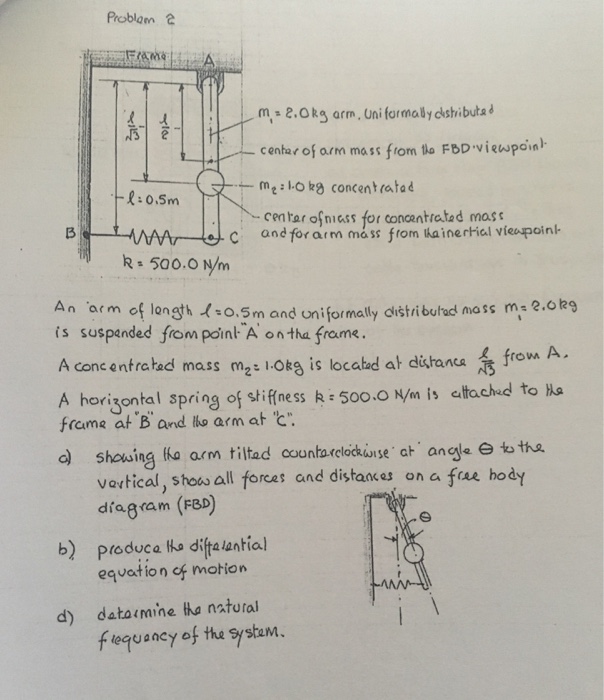 Problem 2
Frame
A
l/√3
l/2
m₁ = 2.0kg arm, uniformally distributed
center of arm mass from the FBD viewpoint
m₂ = 1.0 kg concentrated
l = 0.5m
center of mass for concentrated mass
and for arm mass from the inertial viewpoint
B
C
k = 500.0 N/m
An arm of length l = 0.5m and uniformally distributed mass m₁ = 2.0kg
is suspended from point "A" on the frame.
A concentrated mass m₂ = 1.0kg is located at distance l/√3 from A.
A horizontal spring of stiffness k = 500.0 N/m is attached to the
frame at "B" and the arm at "C".
a) showing the arm tilted counterclockwise at angle θ to the
vertical, show all forces and distances on a free body
diagram (FBD)
θ
b) produce the differential
equation of motion
d) determine the natural
frequency of the system.